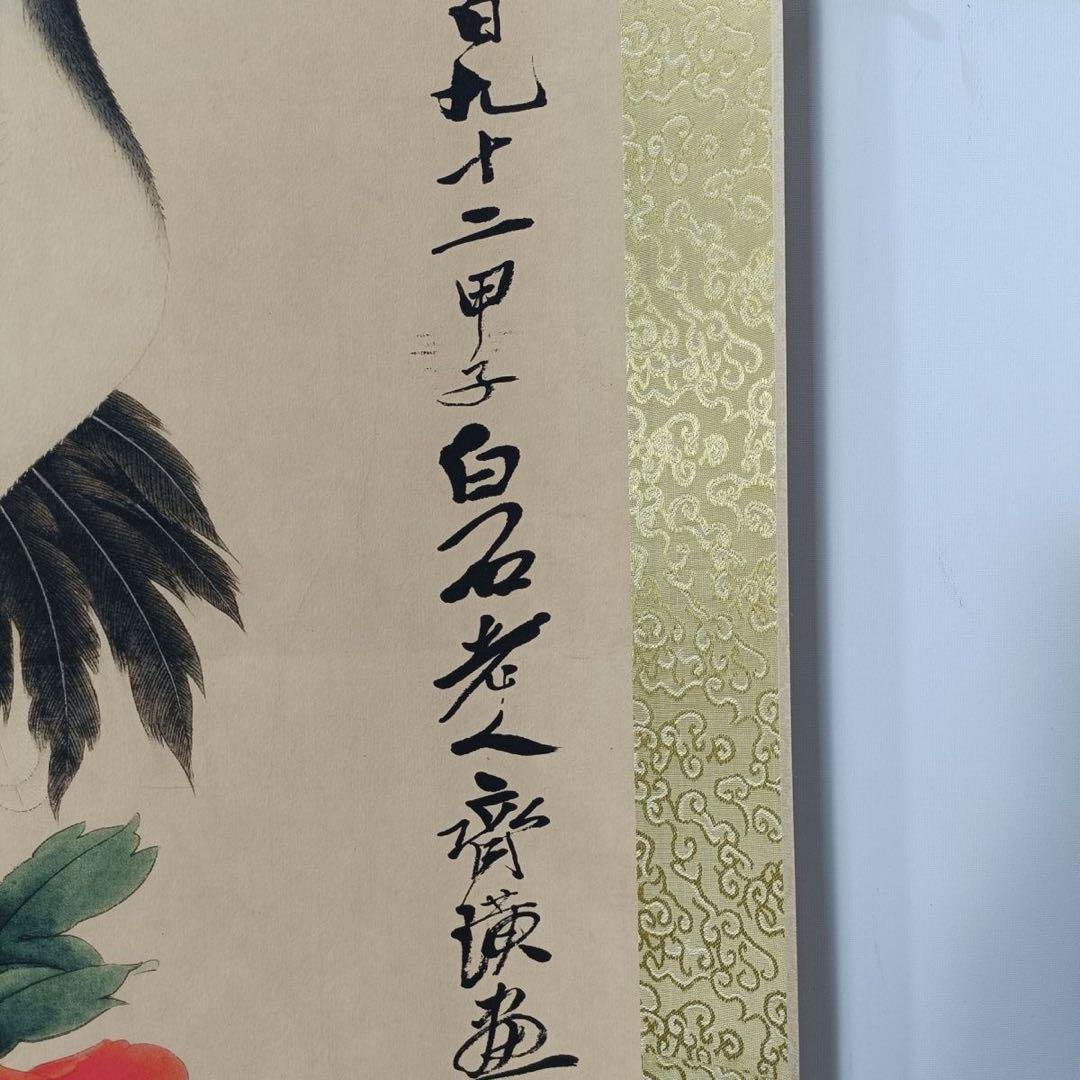 百九十二甲子白石老人齊璜画